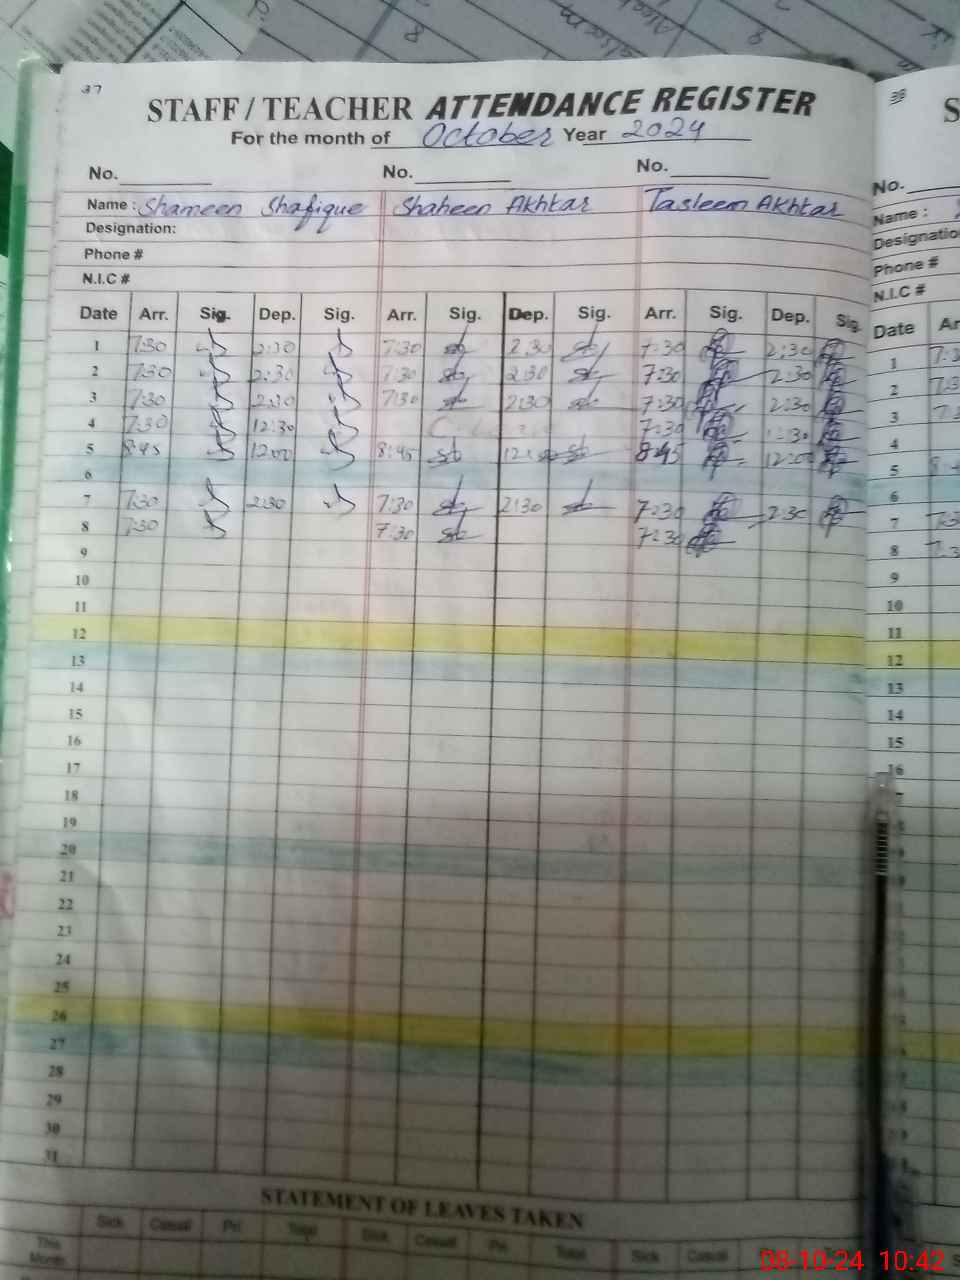 37
STAFF / TEACHER ATTENDANCE REGISTER
For the month of October Year 2024
No. No. No.
Name : Shameen Shafique Shaheen Akhtar Tasleem Akhtar
Designation:
Phone #
N.I.C #
Date Arr. Sig. Dep. Sig. Arr. Sig. Dep. Sig. Arr. Sig. Dep. Sig.
1 7:30 2:30 7:30 2:30 7:30 2:30
2 7:30 2:30 7:30 2:30 7:30 2:30
3 7:30 2:30 7:30 2:30 7:30 2:30
4 7:30 12:30 7:30
5 8:45 12:00 8:45 8:45 12:00
6
7 7:30 2:30 7:30 2:30 7:30 2:30
8 7:30 7:30 7:30
9
10
11
12
13
14
15
16
17
18
19
20
21
22
23
24
25
26
27
28
29
30
31
STATEMENT OF LEAVES TAKEN
Sick Casual Pri Total Sick Casual Pri Total Sick Casual
This
Month
38
S
No.
Name :
Designatio
Phone #
N.I.C #
Date Ar
1
2
3
4
5
6
7
8
9
10
11
12
13
14
15
16
08-10-24 10:42